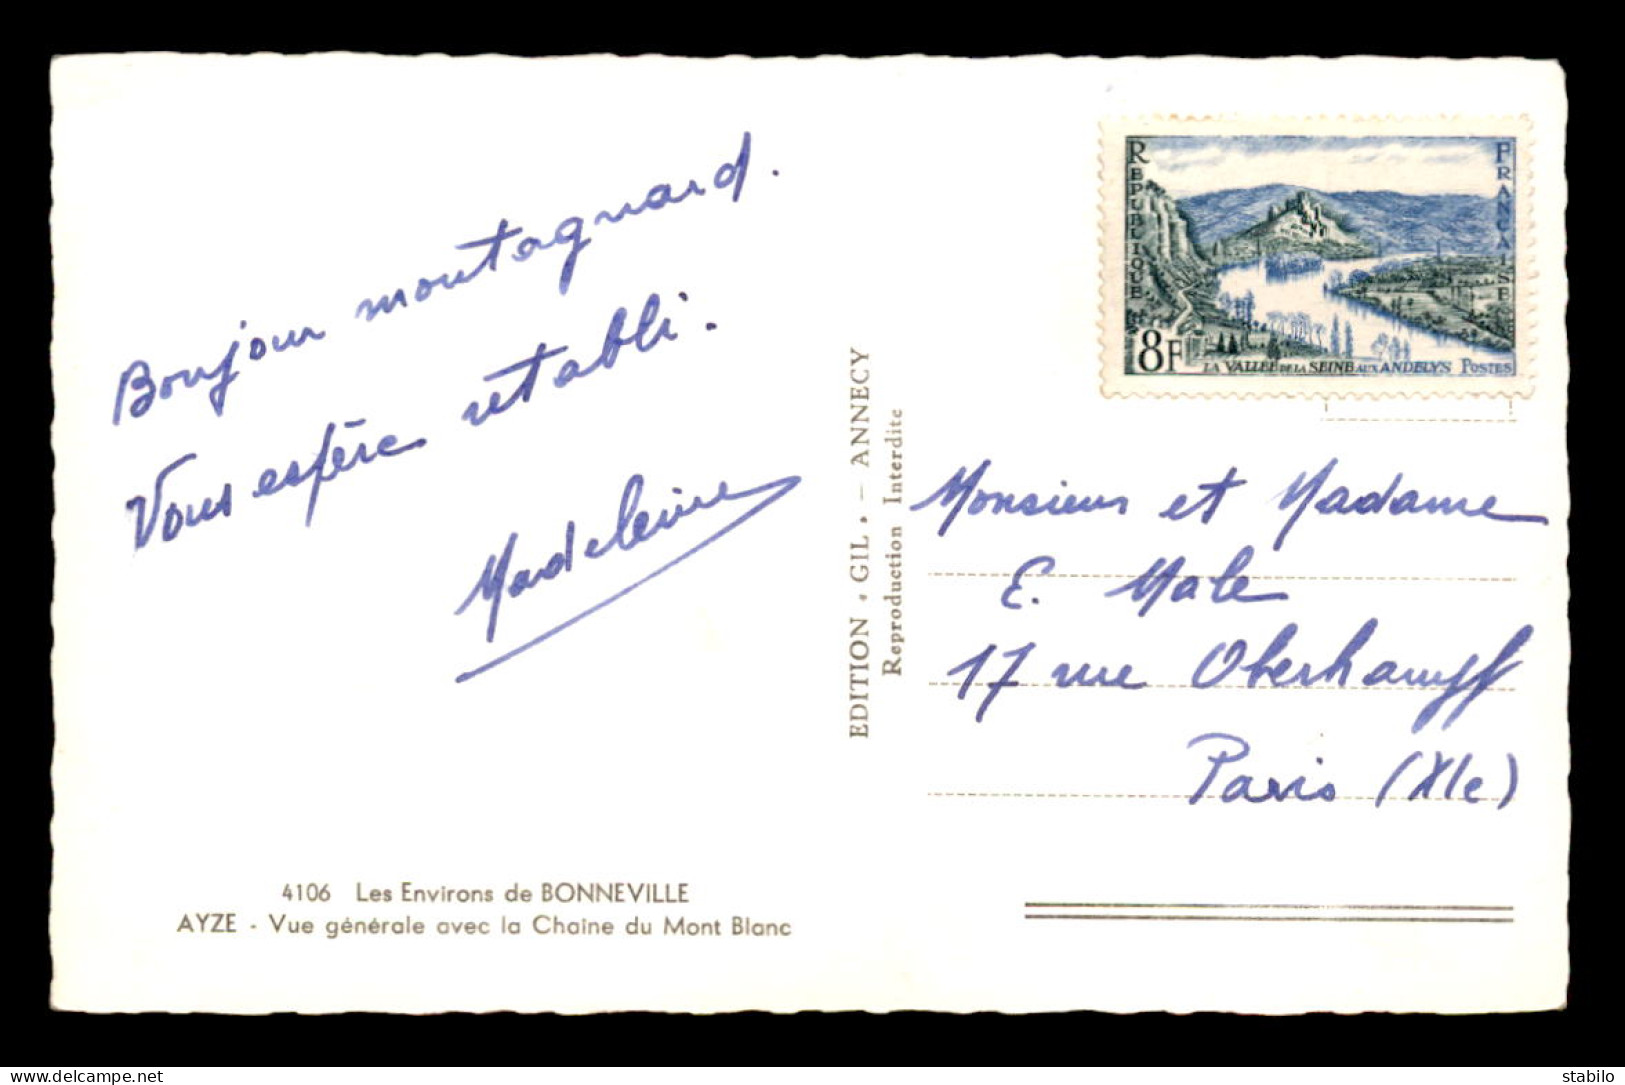 Bonjour montagnard.
Vous espère rétabli.
Madeleine
4106 Les Environs de BONNEVILLE
AYZE - Vue générale avec la Chaîne du Mont Blanc
EDITION "GIL" - ANNECY
Reproduction Interdite
REPUBLIQUE
FRANCAISE
8F
LA VALLEE DE LA SEINE AUX ANDELYS POSTES
Monsieur et Madame
E. Male
17 rue Oberkampf
Paris (XIe)
delcampe.net
stabilo